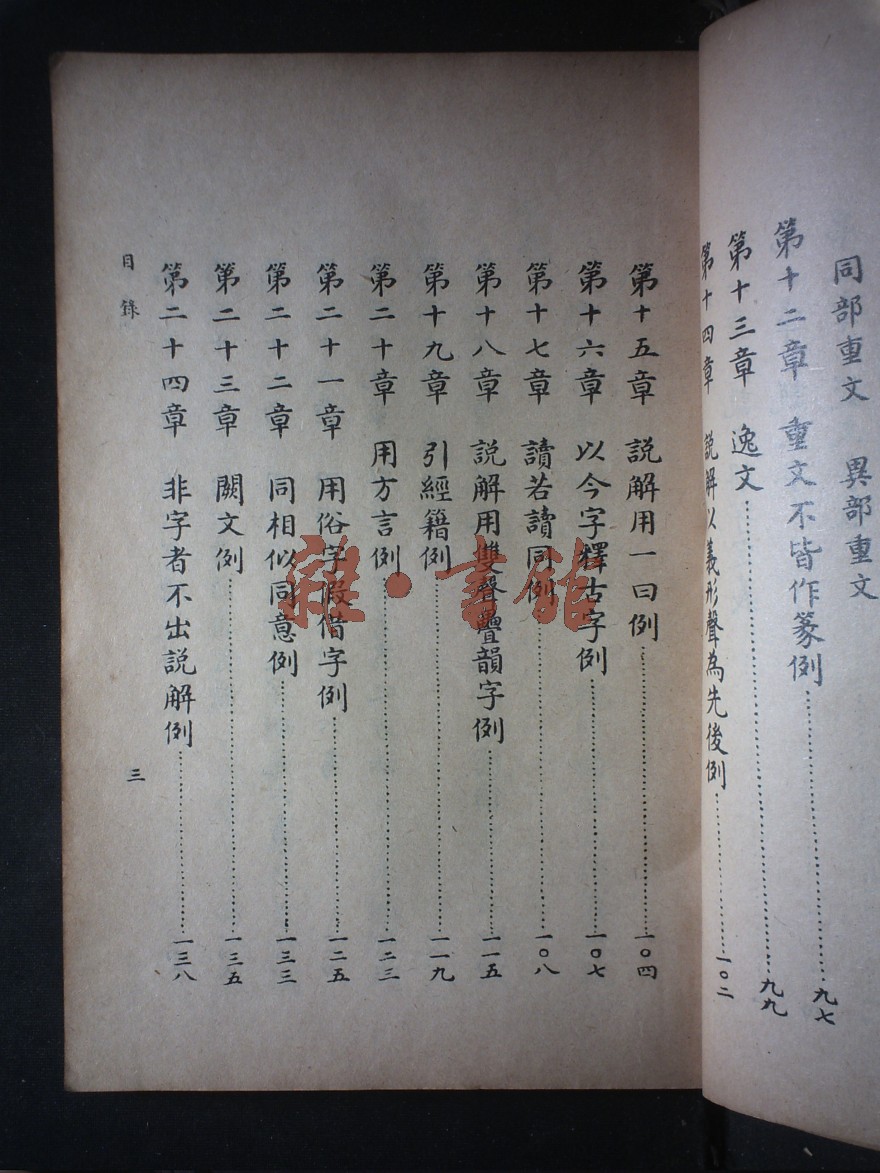 同部重文　異部重文
第十二章　重文不皆作篆例……九七
第十三章　逸文……九九
第十四章　說解以義形聲為先後例……一〇二
第十五章　說解用一曰例……一〇四
第十六章　以今字釋古字例……一〇七
第十七章　讀若讀同例……一〇八
第十八章　說解用雙聲疊韻字例……一一五
第十九章　引經籍例……一一九
第二十章　用方言例……一二三
第二十一章　用俗字假借字例……一二五
第二十二章　同相似同意例……一三三
第二十三章　闕文例……一三五
第二十四章　非字者不出說解例……一三八
目錄
三
雜·書館